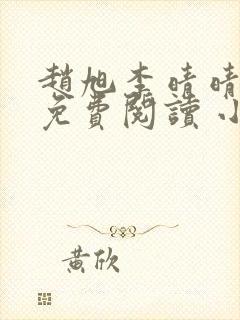 趙旭李晴晴
免費閱讀小
黃欣